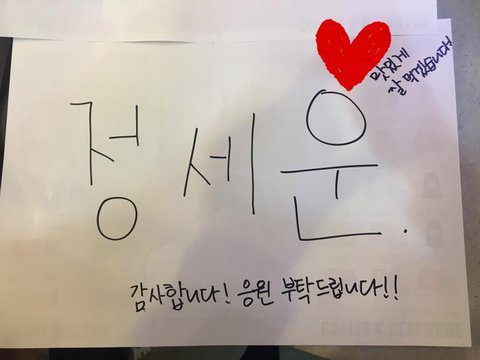 맛있게
잘 먹겠습니다!
정세운.
감사합니다! 응원 부탁드립니다!!
COFFEE & BEVERAGE